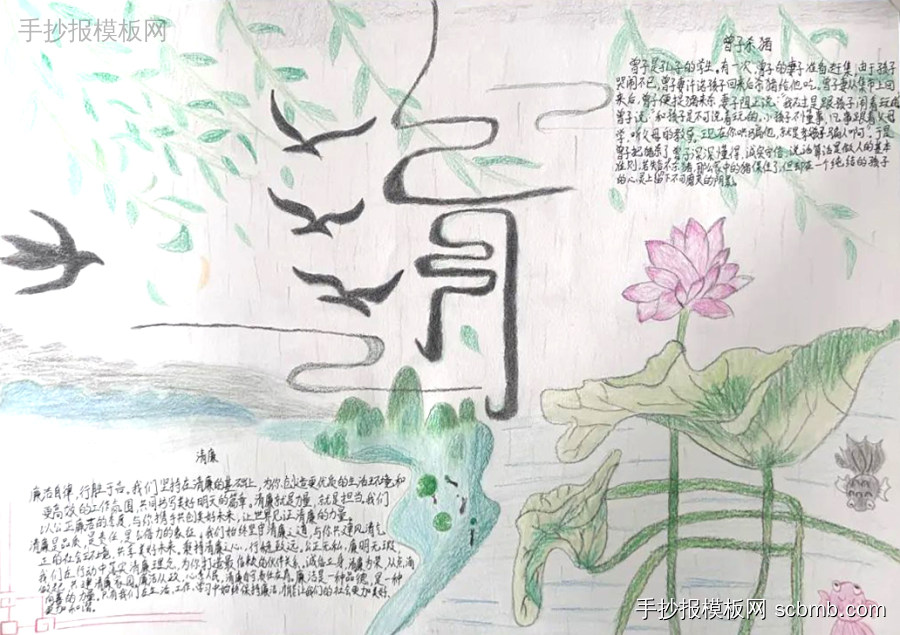 手抄报模板网
清
曾子杀猪
曾子是孔子的学生。有一次,曾子的妻子准备赶集,由于孩子
哭闹不已,曾妻许诺孩子回来后杀猪给他吃。曾妻从集市上回
来后,曾子便捉猪来杀,妻子阻止说:"我不过是跟孩子闹着玩的
曾子说:"和孩子是不可说着玩的。小孩子不懂事,凡事跟着父母
学,听父母的教导。现在你哄骗他,就是教孩子骗人啊"。于是
曾子把猪杀了。曾子深深懂得,诚实守信,说话算话是做人的基本
准则,若失言不杀猪,那么家中的猪保住了,但却在一个纯洁的孩子
的心灵上留下不可磨灭的阴影。
清廉
廉洁自律,行胜于言。我们坚持在清廉的基础上,为你创造更优质的生活环境和
更高效的工作氛围,共同书写美好明天的篇章。清廉就是力量,就是担当,我们
以公正廉洁的态度,与你携手共创美好未来,让世界见证清廉的力量。
清廉是品质,是责任,更是信力的象征。我们始终坚守清廉之道,与你共建风清气
正的社会环境,共享美好未来。秉持清廉之心,行稳致远,公正无私,廉明无瑕。
我们在行动中落实清廉理念,为你打造最信赖的伙伴关系。诚信立身,清廉为荣,从点滴
做起,共建清廉家园。廉洁从政,心系人民,清廉自守责任在肩。廉洁是一种品德,是一种
向善的力量。只有我们在生活、工作、学习中始终保持廉洁,才能让我们的社会更加美好,
更加和谐。
手抄报模板网 scbmb.com